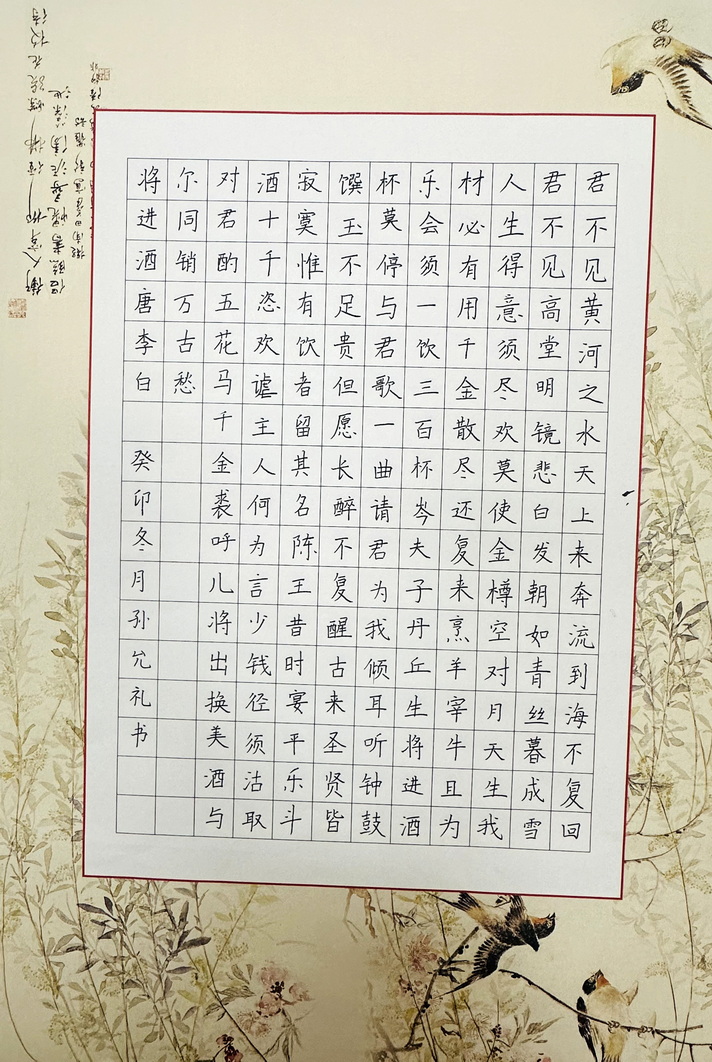 君不见黄河之水天上来奔流到海不复回
君不见高堂明镜悲白发朝如青丝暮成雪
人生得意须尽欢莫使金樽空对月天生我
材必有用千金散尽还复来烹羊宰牛且为
乐会须一饮三百杯岑夫子丹丘生将进酒
杯莫停与君歌一曲请君为我倾耳听钟鼓
馔玉不足贵但愿长醉不复醒古来圣贤皆
寂寞惟有饮者留其名陈王昔时宴平乐斗
酒十千恣欢谑主人何为言少钱径须沽取
对君酌五花马千金裘呼儿将出换美酒与
尔同销万古愁
将进酒唐李白 癸卯冬月孙允礼书